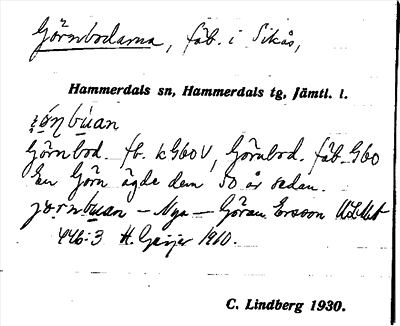 Görnbodarna, fäb. i Sikås,
Hammerdals sn, Hammerdals tg, Jämtl. l.
Görnbod. fb. k G60V, Görnbod. fäb. G60
En Görn ägde dem 50 år sedan.
Nya — Göran Ersson ULMA
446:3 H. Geijer 1910.
C. Lindberg 1930.